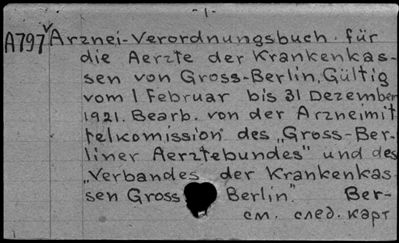 -1-
A797 Arznei-Verordnungsbuch für
die Aerzte der Krankenkas-
sen von Gross-Berlin, Gültig
vom 1 Februar bis 31 Dezember
1921. Bearb. von der Arzneimit
telkomission des „Gross-Ber-
liner Aerztebundes" und des
„Verbandes der Krankenkas-
sen Gross Berlin". Ber-
см. след. карт